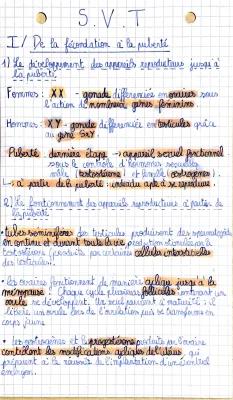 S.V.T
I/ De la fécondation à la puberté
1) Le développement des appareils reproducteurs jusqu'à
la puberté
Femmes : XX - gonade différenciée en ovaires sous
l'action de nombreux gènes féminins
Hommes : XY - gonade différenciée en testicules grâce
au gène SRY
Puberté : dernière étape → appareil sexuel fonctionnel
sous le contrôle d'hormones sexuelles
mâle (testostérone) et femelle (œstrogènes)
↳ à partir de la puberté : individu apte à se reproduire
2) Le fonctionnement des appareils reproducteurs à partir de
la puberté
• tubes séminifères des testicules produisent des spermatozoïdes
en continu et durant toute la vie, production stimulée par la
testostérone (produite par certaines cellules interstitielles
des testicules).
• les ovaires fonctionnent de manière cyclique jusqu'à la
ménopause. Chaque cycle plusieurs follicules contenant un
ovule se développent. Un seul parvient à maturité : il
libère un ovule lors de l'ovulation puis se transforme en
corps jaune
• les œstrogènes et la progestérone produits par l'ovaire
contrôlent les modifications cycliques de l'utérus, qui
préparent à la réussite de l'implantation d'un éventuel
embryon.